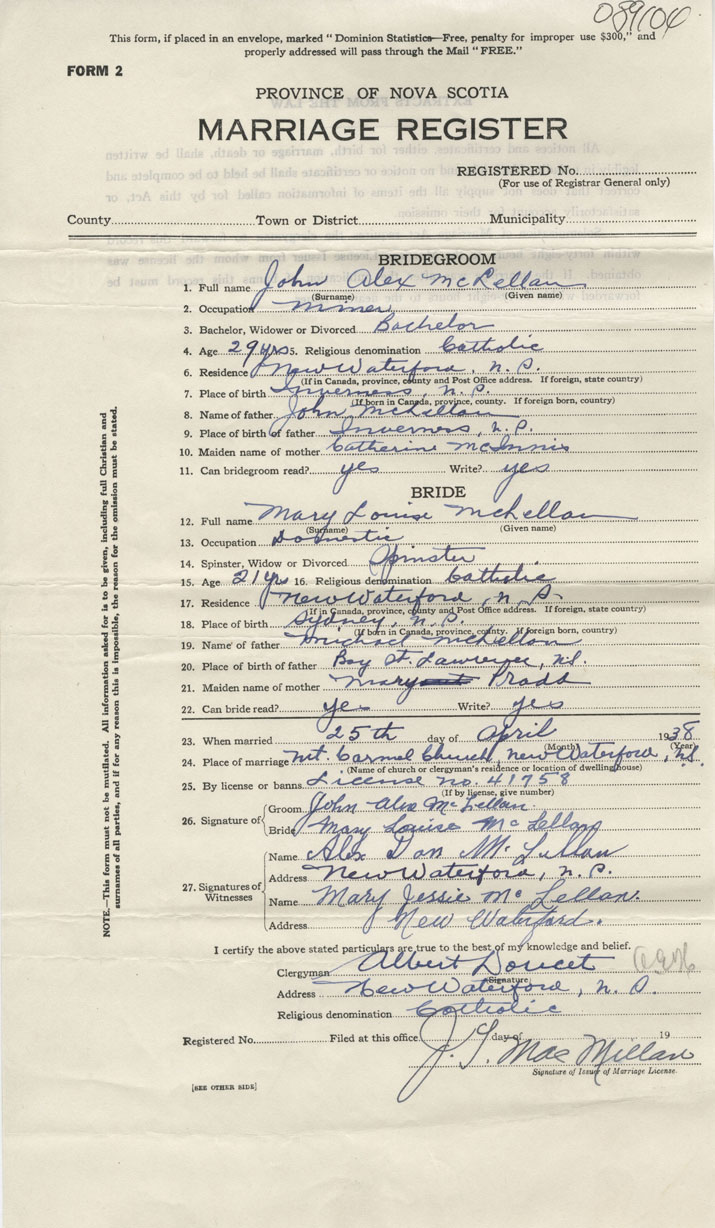 039104
This form, if placed in an envelope, marked "Dominion Statistics—Free, penalty for improper use $300," and
properly addressed will pass through the Mail "FREE."
FORM 2
PROVINCE OF NOVA SCOTIA
MARRIAGE REGISTER
REGISTERED No.
(For use of Registrar General only)
County Town or District Municipality
BRIDEGROOM
1. Full name John Alex McLellan
(Surname) (Given name)
2. Occupation Miner
3. Bachelor, Widower or Divorced Bachelor
4. Age 29 yrs 5. Religious denomination Catholic
6. Residence New Waterford, N.S.
(If in Canada, province, county and Post Office address. If foreign, state country)
7. Place of birth Inverness, N.S.
(If born in Canada, province, county. If foreign born, country)
8. Name of father John McLellan
9. Place of birth of father Inverness, N.S.
10. Maiden name of mother Catherine McInnis
11. Can bridegroom read? yes Write? yes
BRIDE
12. Full name Mary Louise McLellan
(Surname) (Given name)
13. Occupation Domestic
14. Spinster, Widow or Divorced Spinster
15. Age 21 yrs 16. Religious denomination Catholic
17. Residence New Waterford, N.S.
(If in Canada, province, county and Post Office address. If foreign, state country)
18. Place of birth Sydney, N.S.
(If born in Canada, province, county. If foreign born, country)
19. Name of father Michael McLellan
20. Place of birth of father Bay St. Lawrence, N.S.
21. Maiden name of mother Mary
22. Can bride read? yes Write? yes
23. When married 25th day of April 1938
(Month) (Year)
24. Place of marriage Mt. Carmel Church, New Waterford, N.S.
(Name of church or clergyman's residence or location of dwelling house)
25. By license or banns License no. 41758
(If by license, give number)
26. Signature of Groom John Alex McLellan.
Bride Mary Louise McLellan
27. Signatures of Witnesses Name Alex Dan McLellan
Address New Waterford, N.S.
Name Mary Jessie McLellan.
Address New Waterford.
I certify the above stated particulars are true to the best of my knowledge and belief.
Clergyman Albert Doucet
Signature
Address New Waterford, N.S.
Religious denomination Catholic
Registered No. Filed at this office day of 19
J. G. MacMillan
Signature of Issuer of Marriage License.
[SEE OTHER SIDE]
NOTE.—This form must not be mutilated. All information asked for is to be given, including full Christian and
surnames of all parties, and if for any reason this is impossible, the reason for the omission must be stated.